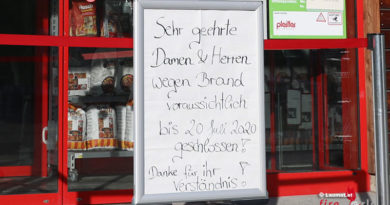 Pfeiffer
Sehr geehrte
Damen & Herren
wegen Brand
voraussichtlich
bis 20 Juli 2020
geschlossen!
Danke für ihr
verständnis!